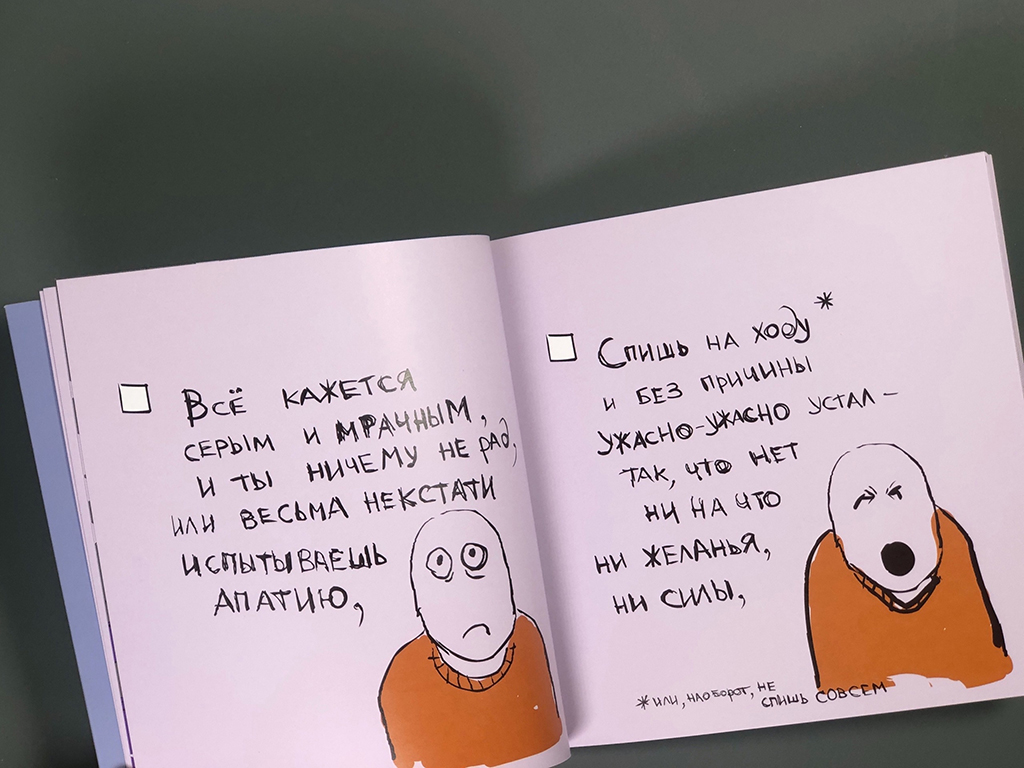 Всё кажется
серым и мрачным,
и ты ничему не рад,
или весьма некстати
испытываешь
апатию,
Спишь на ходу*
и без причины
ужасно-ужасно устал –
так, что нет
ни на что
ни желанья,
ни силы,
*или, наоборот, не
спишь совсем